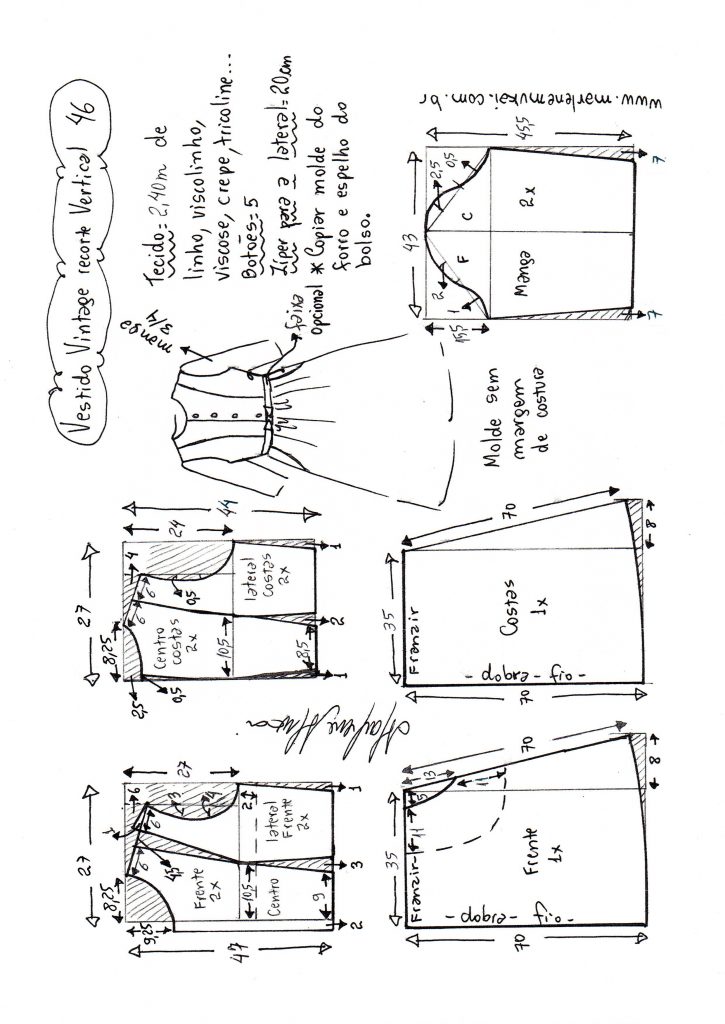 Vestido Vintage recorte Vertical 46
Tecido = 2,40m de
linho, viscolinho,
viscose, crepe, tricoline...
Botões = 5
Zíper para a lateral = 20cm
* Copiar molde do
forro e espelho do
bolso.
manga
3/4
faixa
opcional
Molde sem
margem
de costura
www.marlenemukai.com.br
27
8,25
9,25
47
27
6
1
6
6
4,5
3
4
2
10,5
9
Frente
2x
Centro
lateral
Frente
2x
2
3
1
27
8,25
4
24
44
6
6
2,5
0,5
0,5
10,5
8,5
Centro
costas
2x
lateral
costas
2x
1
2
1
43
15,5
45,5
2
1
2,5
0,5
F
C
Manga
2x
7
7
35
Franzir
11
5
13
11
70
70
8
Frente
1x
- dobra - fio -
35
Franzir
70
70
8
Costas
1x
- dobra - fio -